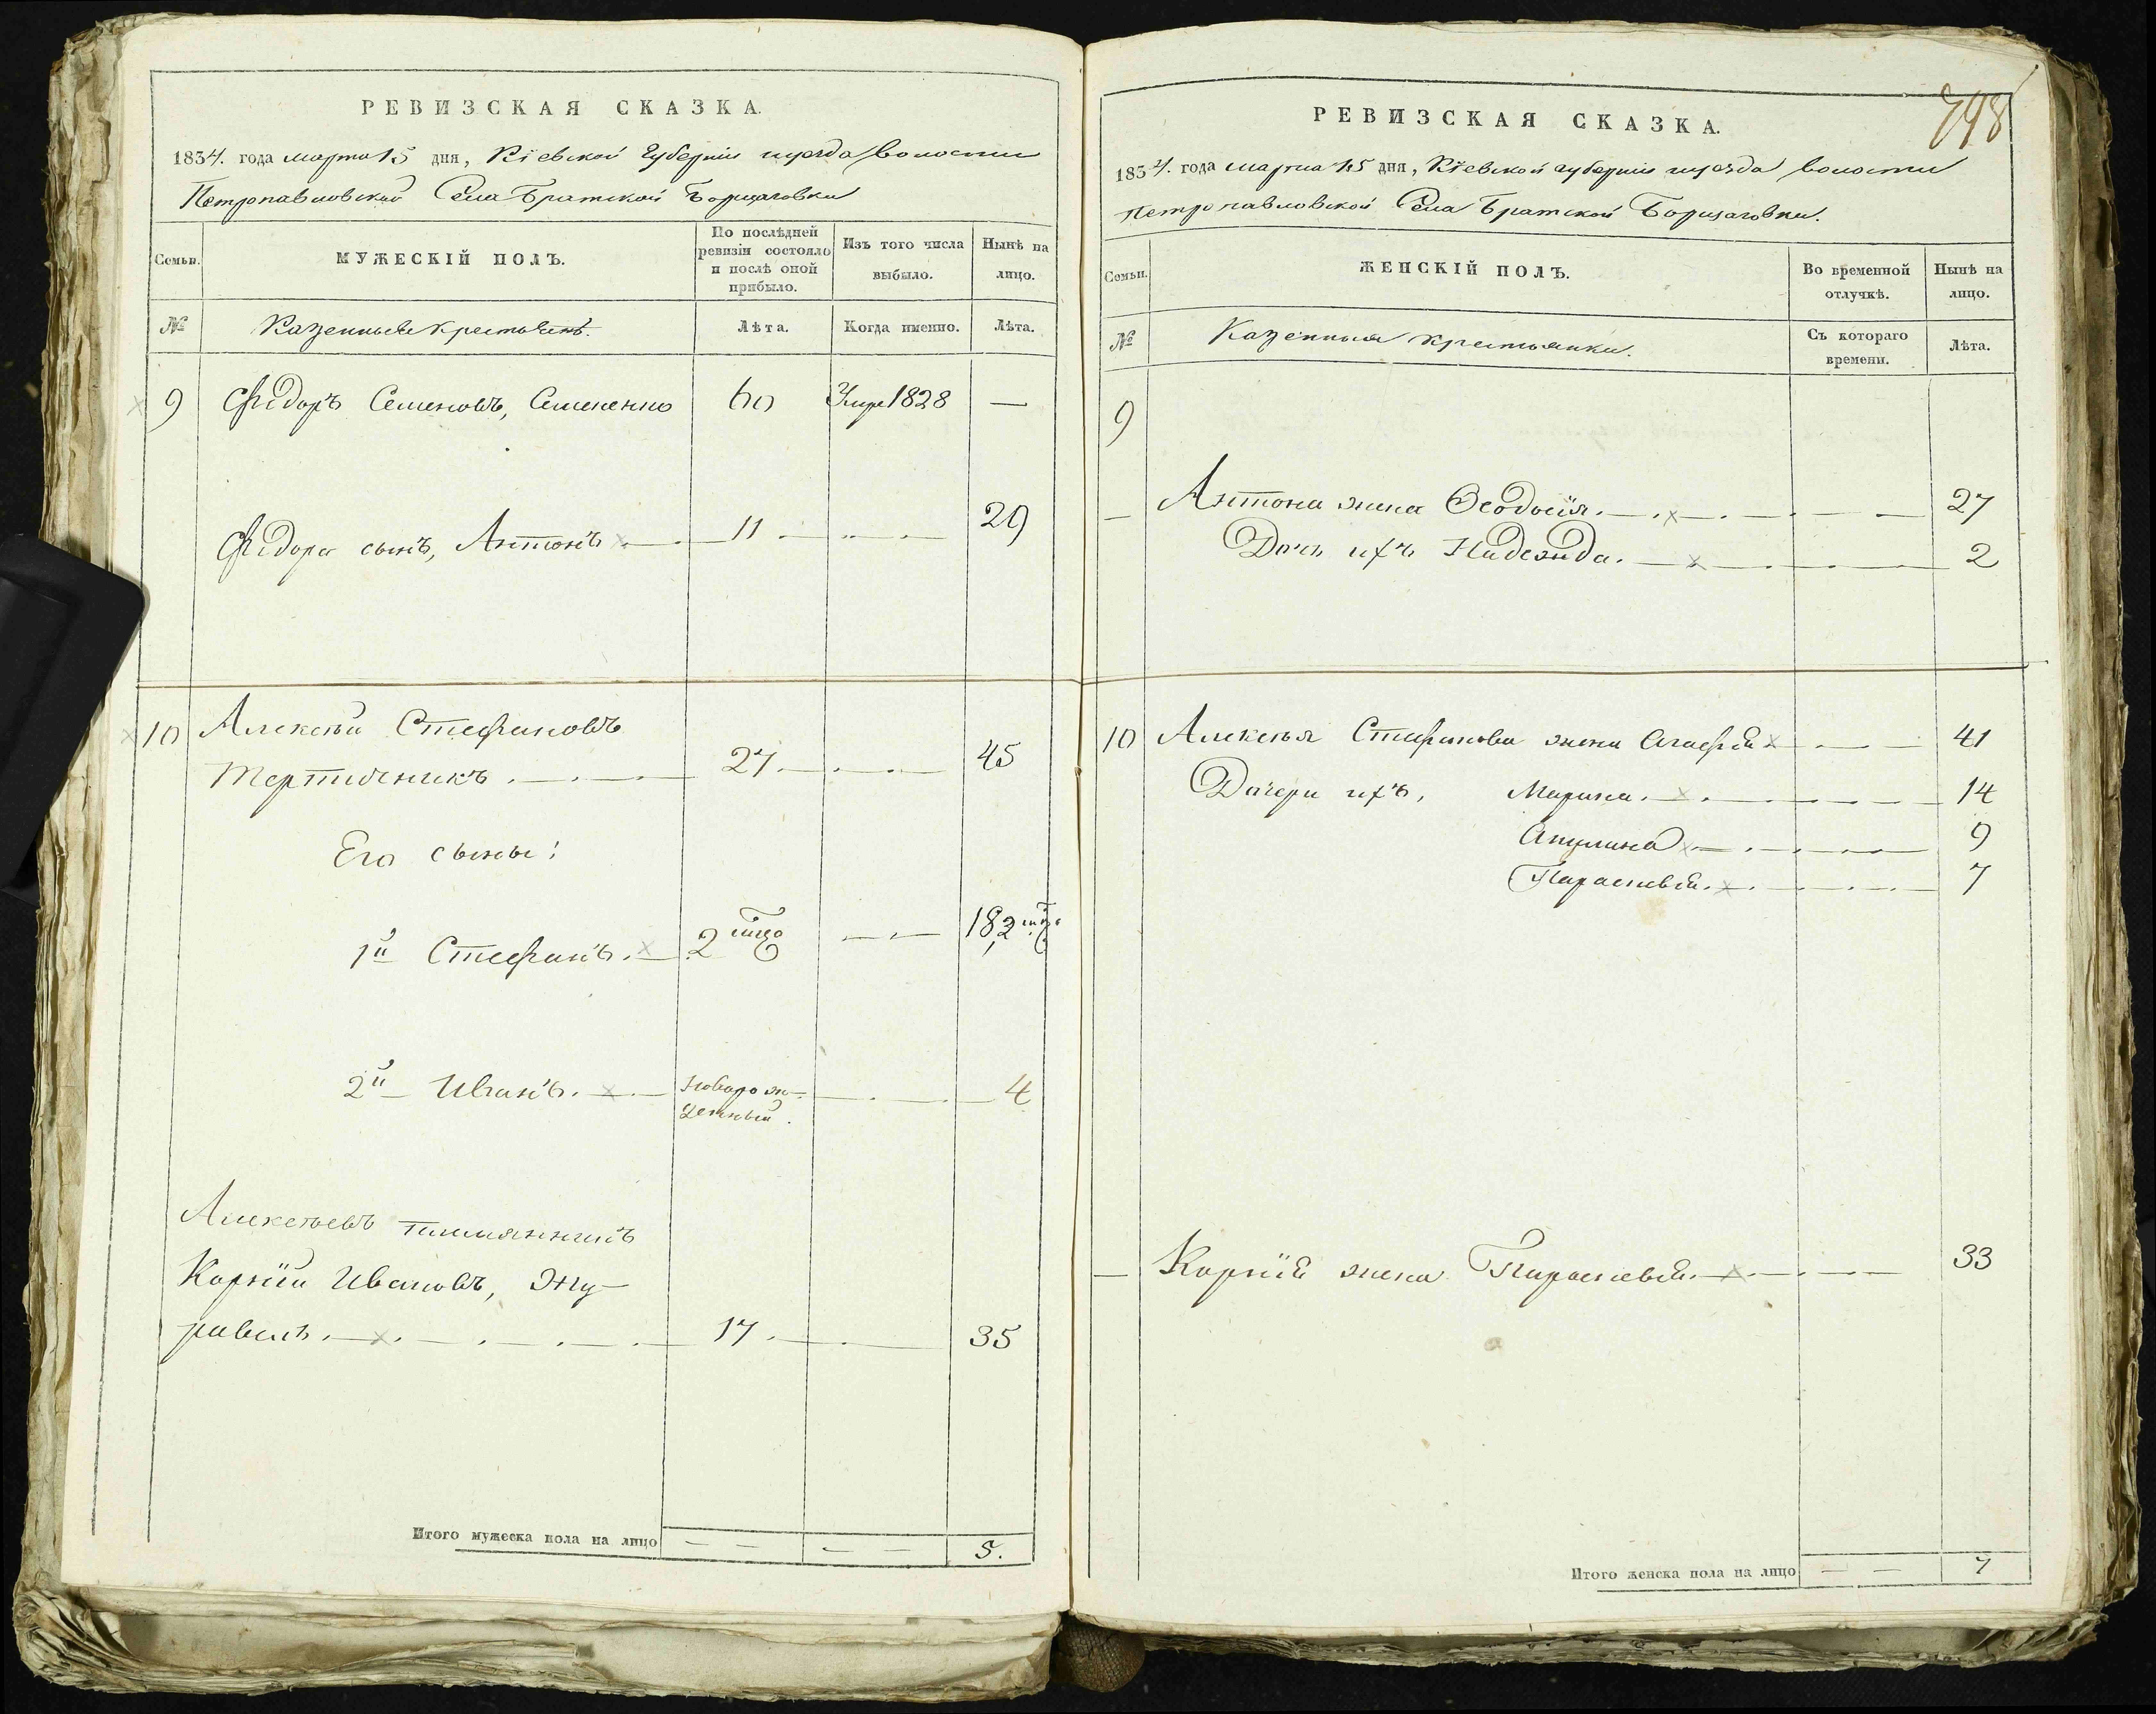 РЕВИЗСКАЯ СКАЗКА.
1834. года марта 15 дня, Кіевской Губерніи и уезда волости
Петропавловской Села Братской Борщаговки
Семьи.
МУЖЕСКІЙ ПОЛЪ.
По послѣдней ревизіи состояло и послѣ оной прибыло.
Изъ того числа выбыло.
Нынѣ на лицо.
№
Казенныя крестьяне.
Лѣта.
Когда именно.
Лѣта.
9 Фѣдоръ Семеновъ, Семененко 60 Умре 1828 —
Фѣдора сынъ, Антонъ 11 29
10 Алексѣй Стефановъ
Тертичникъ 27 45
Его сыны:
1й Стефанъ. 2 18 2
2й Иванъ. новорож-
денный. 4
Алексѣевъ племянникъ
Корнѣй Ивановъ, Жу-
равель. 17. 35
Итого мужеска пола на лицо — — — — 5.
748
РЕВИЗСКАЯ СКАЗКА.
1834. года марта 15 дня, Кіевской губерніи и уезда волости
Петропавловской Села Братской Борщаговки.
Семьи.
ЖЕНСКІЙ ПОЛЪ.
Во временной отлучкѣ.
Нынѣ на лицо.
№
Казенныя крестьянки.
Съ котораго времени.
Лѣта.
9
— Антона жена Феодосія. 27
Дочь ихъ Надежда. 2
10 Алексѣя Стефанова жена Агафія 41
Дочери ихъ, Марина. 14
Акулина 9
Параскевія. 7
— Корнія жена Параскевія. 33
Итого женска пола на лицо — — 7